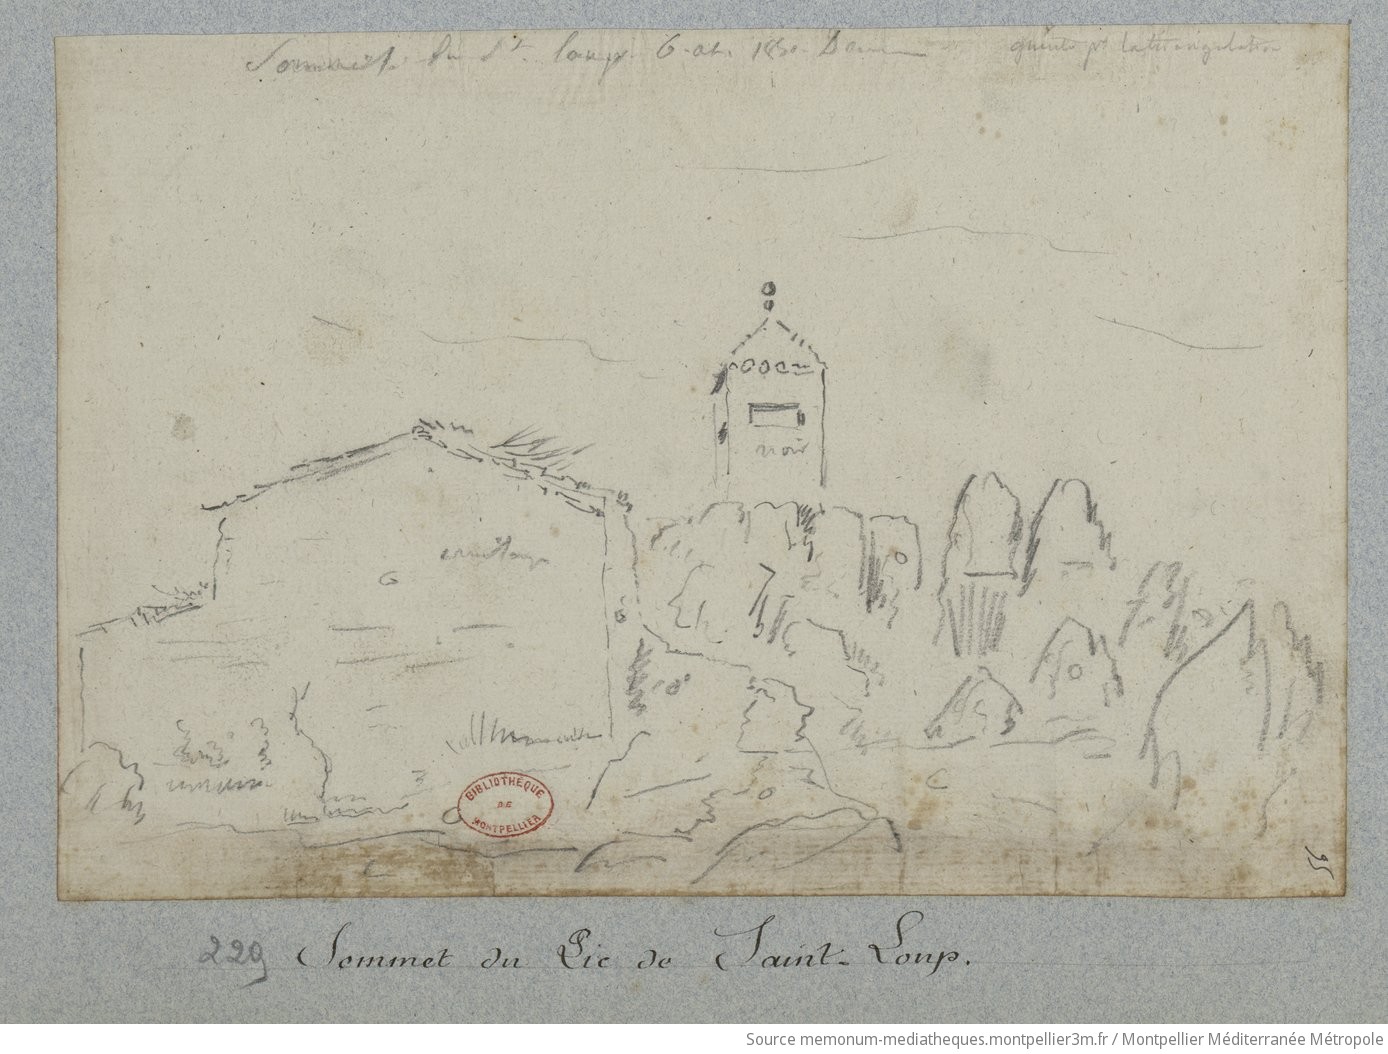 Sommet du St. loup 6. 
la triangulation
noir
ermitage
BIBLIOTHEQUE
DE
MONTPELLIER
95
229 Sommet du Pic de Saint-Loup.
Source memonum-mediatheques.montpellier3m.fr / Montpellier Méditerranée Métropole